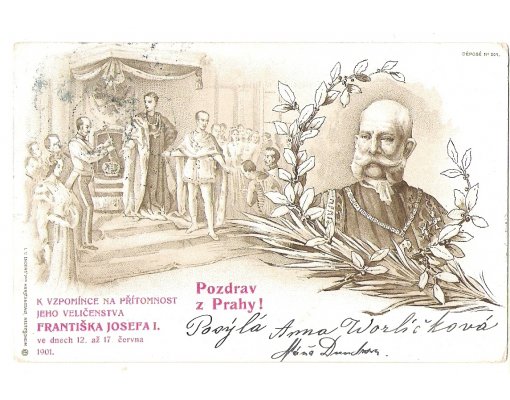 DÉPOSÉ Nº 201.
K VZPOMÍNCE NA PŘÍTOMNOST
JEHO VELIČENSTVA
FRANTIŠKA JOSEFA I.
ve dnech 12. až 17. června
1901.
Pozdrav
z Prahy!
Posýlá Anna Worlíčková